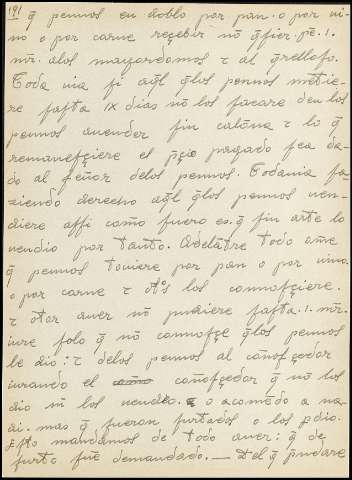 191 q̄ pennos en doblo por pan. o por ui-
no o por carne reçebir nō q̄sier. pē .i.
mr. alos mayordomos τ al q̄relloso.
Toda uia si aq̄l q̄los pennos metie-
re fasta ix dias nō los sacare den los
pennos auender sin calōna τ lo q̄
remanesçiere el p̄çio pagado sea da-
do al señor delos pennos. Todauia fa-
ziendo derecho aq̄l q̄los pennos uen-
diere assi como fuero es. q̄ sin arte lo
uendio por tanto. Adelātre todo ōme
q̄ pennos touiere por pan o por uino.
o por carne τ otºs los connosçiere.
τ otor auer nō pudiere fasta .i. mr.
iure solo q̄ nō connosçe q̄los pennos
le dio: τ delos pennos al coñosçedor
iurando el coñosçedor q̄ nō los
dio ni los uendio. o acomēdo a na-
di. mas q̄ fueron furtados o los p̄dio.
Esto mandamos de todo auer: q̄ de
furto fuē demandado. — Del q̄ pudare